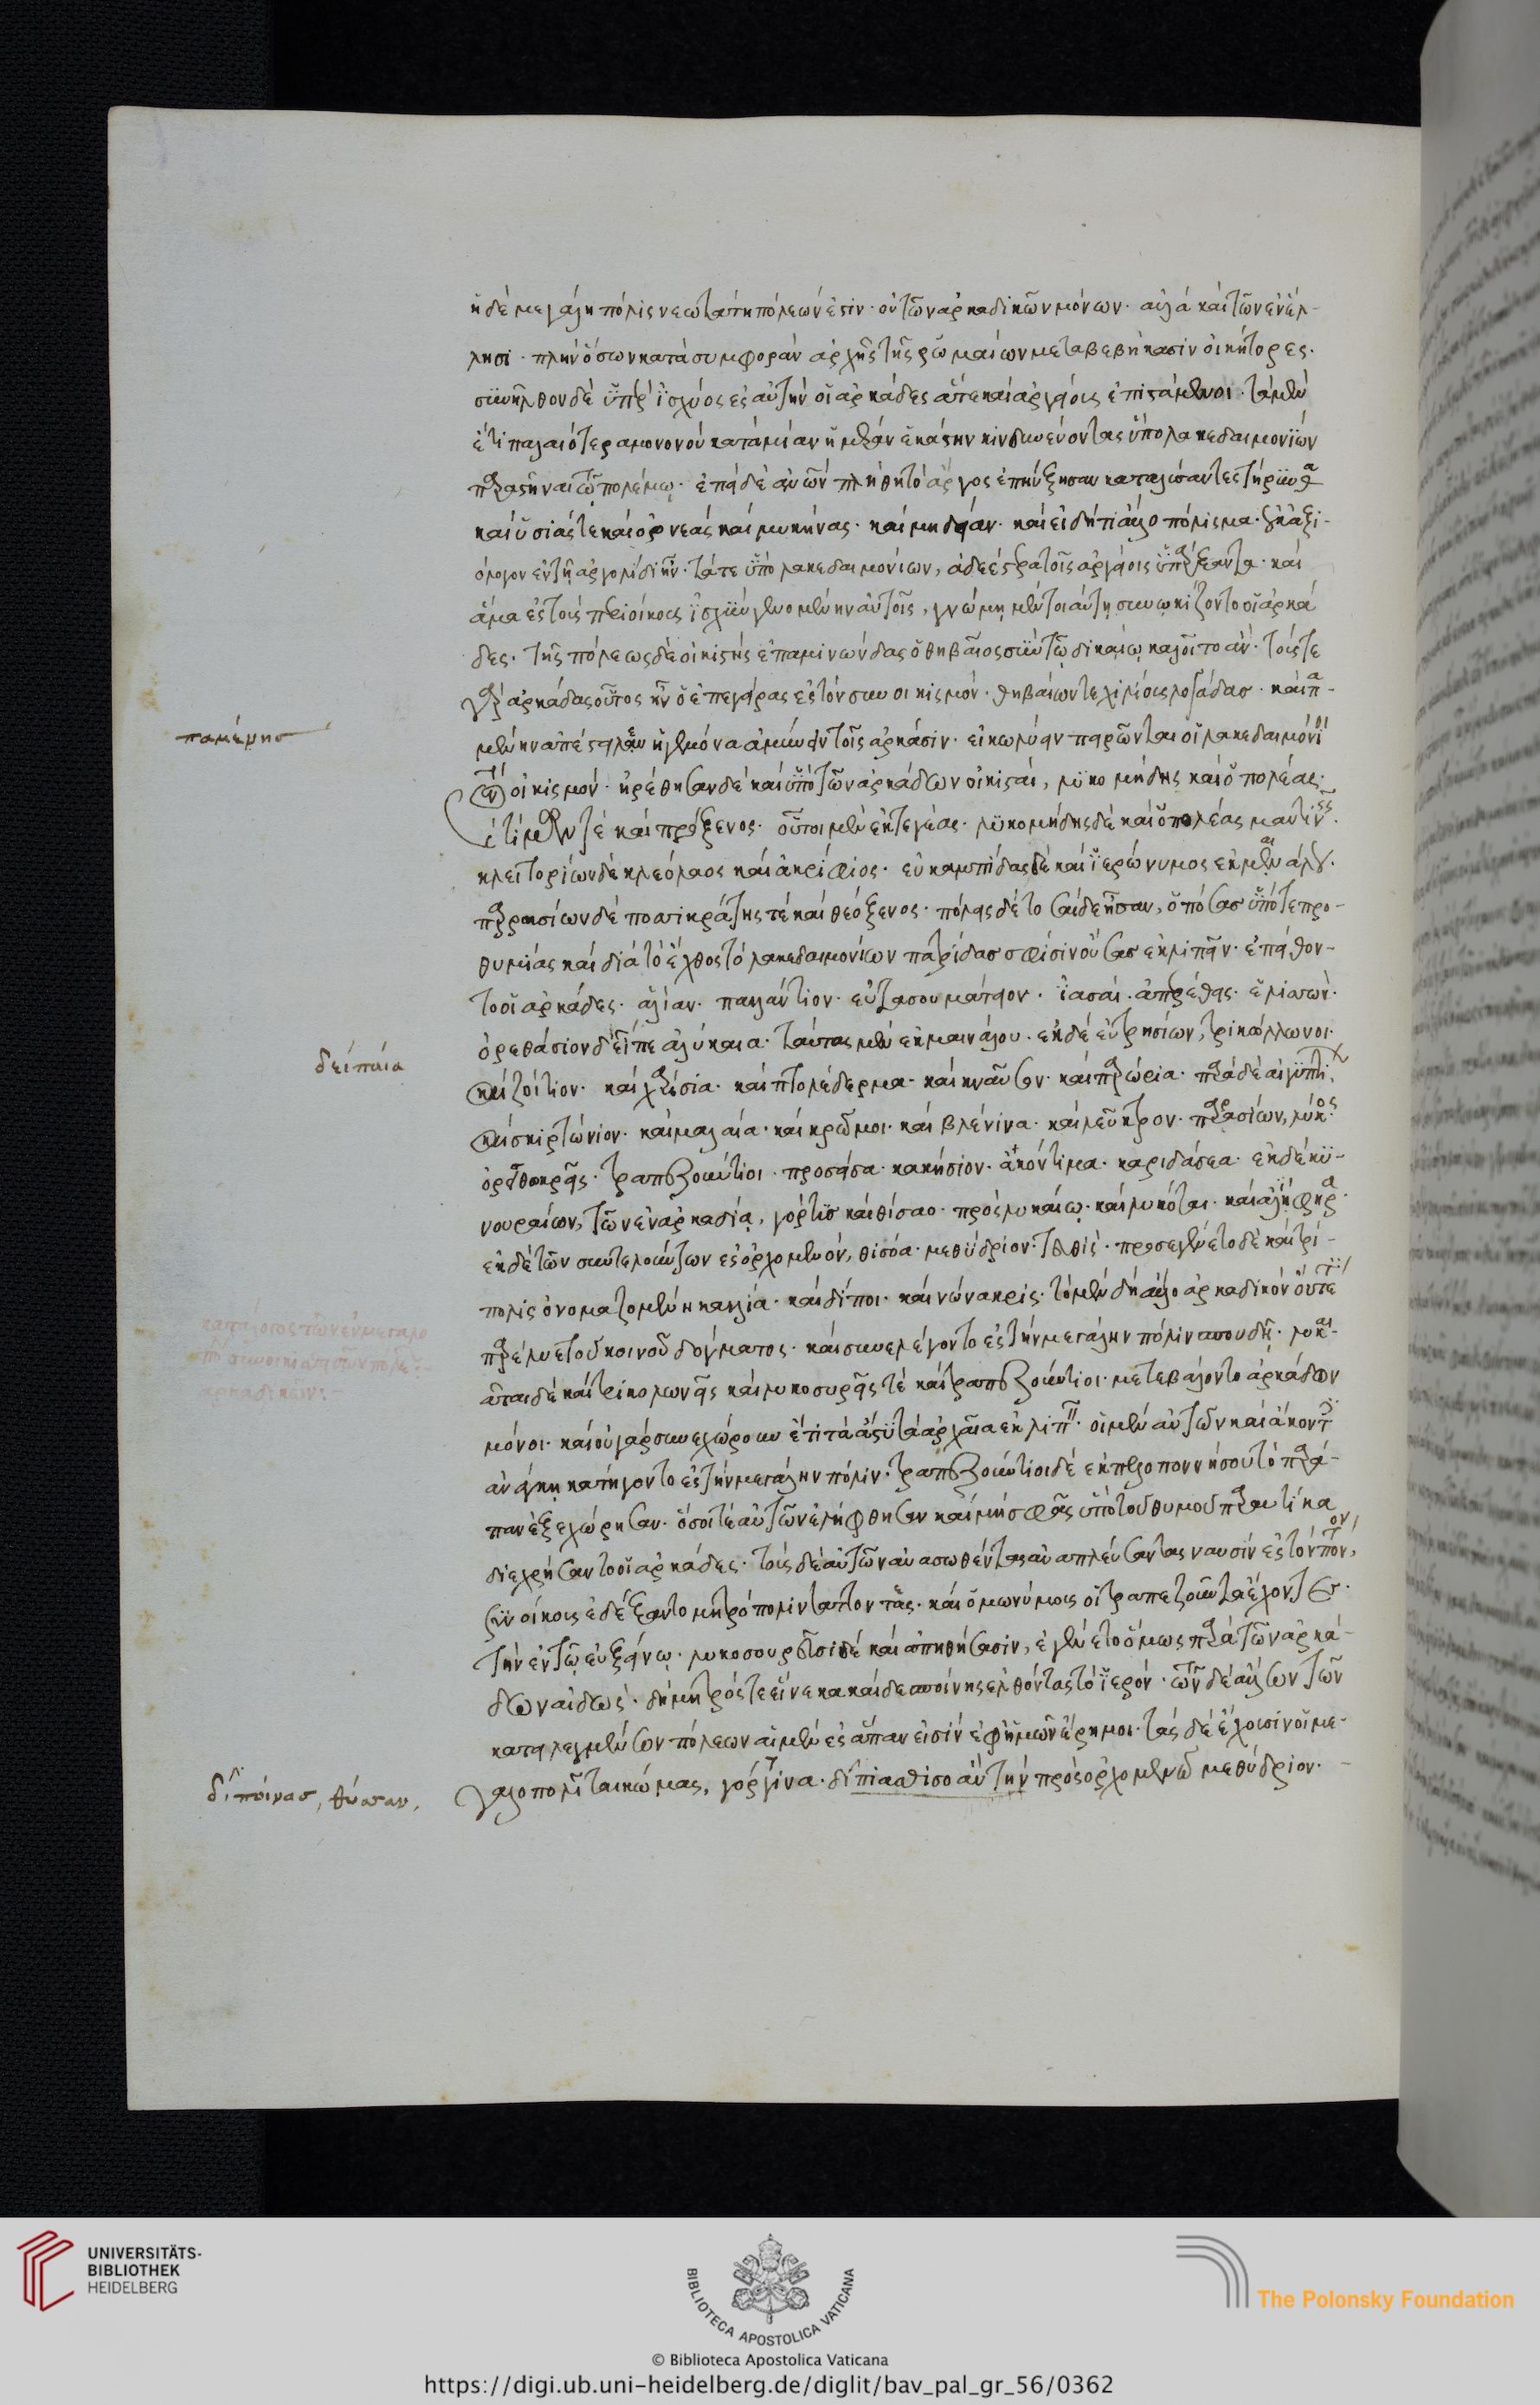 ἡ δὲ μεγάλη πόλις νεωτάτη πόλεων ἐστιν· οὐ τῶν ἀρκαδικῶν μόνων· ἀλλὰ καὶ τῶν ἐν ἕλ-
λησι· πλὴν ὅσων κατὰ συμφορὰν ἀρχῆς τῆς ῥωμαίων μεταβεβήκασιν οἰκήτορες·
συνῆλθον δὲ ὑπὲρ ἰσχύος ἐς αὐτὴν οἱ ἀρκάδες ἅτε καὶ ἀργείοις ἐπιστάμενοι· τὰ μὲν
ἔτι παλαιότερα μονονοὺ κατὰ μίαν ἡμέραν ἑκάστην κινδυνεύοντας ὑπὸ λακεδαιμονίων
παραστῆναι τῶ πολέμω· ἐπεὶ δὲ ἀνων πλήθη τὸ ἄργος ἐπηύξησαν καταλύσαντες τήρυνθα
καὶ ὑσιάς τε καὶ ὀρνεὰς καὶ μυκήνας· καὶ μηδειαν· καὶ εἰ δή τι ἄλλο πόλισμα οὐκ ἀξι-
όλογον ἐν τῆ ἀργολίδι ἦν· τά τε ὑπὸ λακεδαιμονίων, ἀδεέστερα τοῖς ἀργείοις ὑπάρξαντα· καὶ
ἅμα ἐς τοὺς περιοίκους ἰσχὺν γενομένην αὐτοῖς, γνώμη μὲν τοιαύτη συνωκίζοντο οἱ ἀρκά
δες· τῆς πόλεως δὲ οἰκιστὴς ἐπαμινώνδας ὁ θηβαῖος σὺν τῶ δικαίω καλοῖτο ἄν· τούς τε
γὰρ ἀρκάδας οὗτος ἦν ὁ ἐπεγείρας ἐς τὸν συνοικισμόν· θηβαίων τε χιλίους λογάδασ· καὶ πα-
πομέμησ
μένην ἀπέστειλεν ἡγεμόνα ἀμύνειν τοῖς ἀρκάσιν· εἰ κωλύειν πειρῶνται οἱ λακεδαιμόνιοι
τὸν οἰκισμόν· ἡρέθησαν δὲ καὶ ὑπὸ τῶν ἀρκάδων οἰκισταί, λυκομήδης καὶ ὀπολέας·
καὶ πρόξενος· οὗτοι μὲν ἐκ τεγέας· λυκομήδης δὲ καὶ ὀπολέας μαντιν
κλειτορίων δὲ κλεόλαος καὶ ἀκρίφιος· εὐκαμπίδας δὲ καὶ ἱερώνυμος ἐκ μαινάλου·
παρρασίων δὲ ποσικράτης τὲ καὶ θεόξενος· πόλεις δὲ τοσαίδε ἦσαν, ὁπόσασ ὑπό τε προ-
θυμίας καὶ διὰ τὸ ἔχθος τὸ λακεδαιμονίων πατρίδασ σφίσιν οὔσασ ἐκλιπεῖν· ἐπείθον-
το οἱ ἀρκάδες· ἀλίαν· παλλάντιον· εὐτασου ματειον· ἰασαί· ἀπερέθεις· ἑλισσών·
ὀρεθάσιον διείπε ἀλύκαια· ταύτας μὲν ἐκ μαινάλου· ἐκ δὲ εὐτρησίων, τρικόλλωνοι·
δείπαία
καὶ ζοίτιον· καὶ χαρίσια· καὶ πτολέδερμα· καὶ κναῦσον· καὶ παρώρια· παρὰ δὲ αἰγυπτί·
καὶ σκιρτώνιον· καὶ μαλαία· καὶ κρῶμοι· καὶ βλένινα· καὶ λεῦκτρον· παρρασίων, λυκος
τραπεζούντιοι· προσεισα· κακήσιον· ἀκόντιμα· καριδάσεα· ἐκ δὲ κυ-
νουραίων, τῶν ἐν ἀρκαδία, γόρτισ καὶ θίσαο· πρὸς λυκαίω· καὶ λυκόται· καὶ ἀλίφηρα·
ἐκ δὲ τῶν συντελούντων ἐς ὀρχομενόν, θισόα· μεθύδριον· τεῦθις· προσεγένετο δὲ καὶ τρί-
πολις ὀνομαζομένη καλλία· καὶ δίποι· καὶ νώνακρις· τὸ μὲν δὴ ἄλλο ἀρκαδικὸν οὔτε
παρέλυε τοῦ κοινοῦ δόγματος· καὶ συνελέγοντο ἐς τὴν μεγάλην πόλιν σπουδῆ· λυκαι-
ᾶται δὲ καὶ τρικολωνεῖς καὶ λυκοσουρεῖς τὲ καὶ τραπεζούντιοι μετεβάλοντο ἀρκάδων
μόνοι· καὶ οὐ γὰρ συνεχώρουν ἔτι τὰ ἄστυ τὰ ἀρχαῖα ἐκλιπεῖν· οἱ μὲν αὐτῶν καὶ ἄκοντες
ἀνάγκη κατήγοντο ἐς τὴν μεγάλην πόλιν· τραπεζούντιοι δὲ ἐκ πελοποννήσου τὸ παρά-
παν ἐξεχώρησαν· ὅσοι τε αὐτῶν ἐλήφθησαν καὶ μὴ σφᾶς ὑπὸ τοῦ θυμοῦ παραυτίκα
διεχρήσαντο οἱ ἀρκάδες· τοὺς δὲ αὐτῶν ἀνασωθέντας ἀναπλεύσαντας ναυσὶν ἐς τὸν πόντον,
συνοίκους ἐδέξαντο μητρόπολιν τ καὶ ὁμωνύμους οἱ τραπεζοῦντα ἔχοντες·
τὴν ἐν τῶ εὐξείνω· λυκοσουρεῦσι δὲ καὶ ἀπηθήσασιν, ἐγένετο ὅμως παρὰ τῶν ἀρκά-
δων αἰδώς· δήμητρός τε εἵνεκα καὶ δεσποίνης ἐλθόντας τὸ ἱερόν· τῶν δὲ ἄλλων τῶν
κατειλεγμένων πόλεων αἱ μὲν ἐς ἅπαν εἰσὶν ἐφ' ἡμῶν ἔρημοι· τὰς δὲ ἔχουσιν οἱ με-
γαλοπολῖται κώμας, γόρτυνα· διπασθίσο αὐτὴν πρὸς ὀρχομενῶ μεθύδριον·
δι ποίνασ, θύασαν,
UNIVERSITÄTS-
BIBLIOTHEK
HEIDELBERG
BIBLIOTECA APOSTOLICA VATICANA
The Polonsky Foundation
© Biblioteca Apostolica Vaticana
https://digi.ub.uni-heidelberg.de/diglit/bav_pal_gr_56/0362